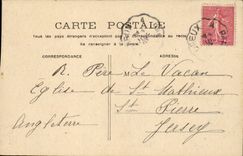 CARTE POSTALE
Tous les pays étrangers n'acceptent pas la correspondance au recto.
Se renseigner à la poste.
CORRESPONDANCE
ADRESSE
R. Père Le Vacon
Eglise de St Mathieux
St Pierre
Jersey
Angleterre